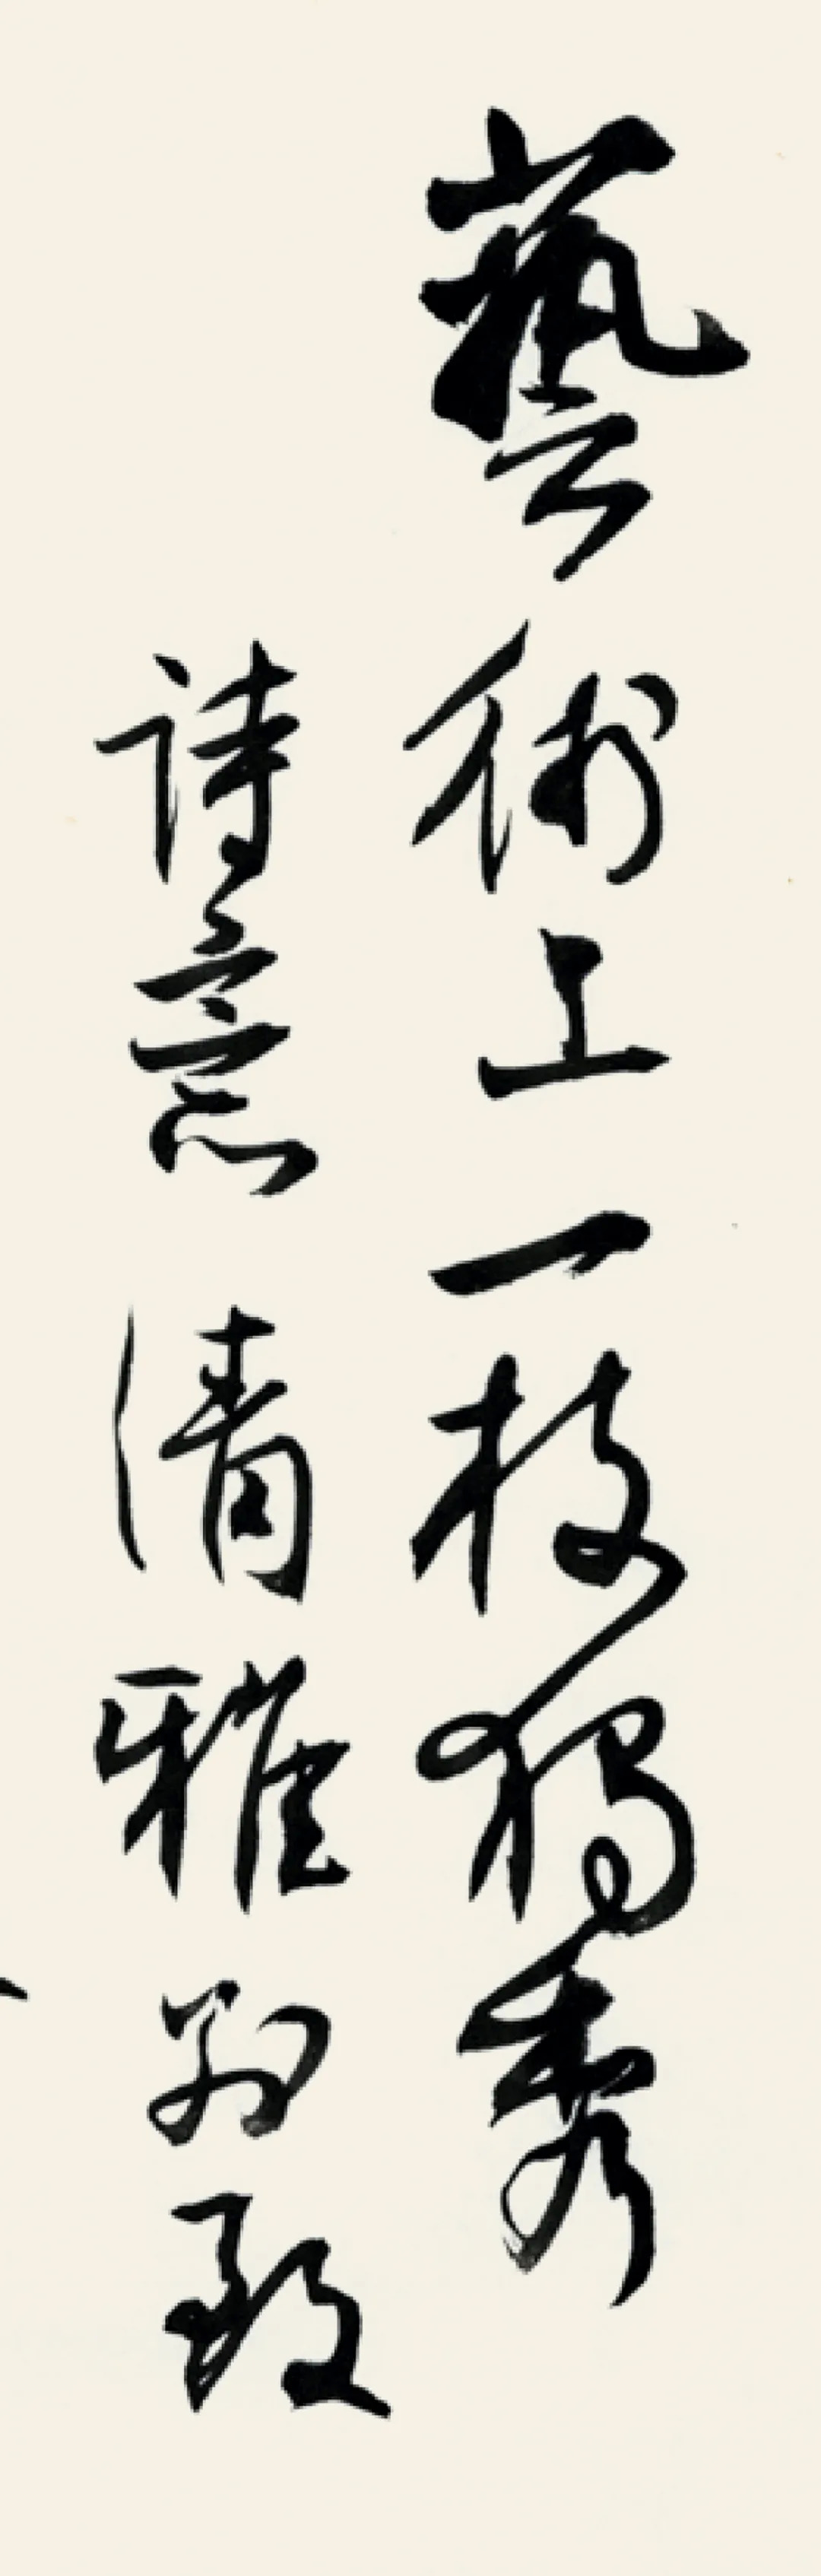 藝術上一枝獨秀
詩意清雅別致